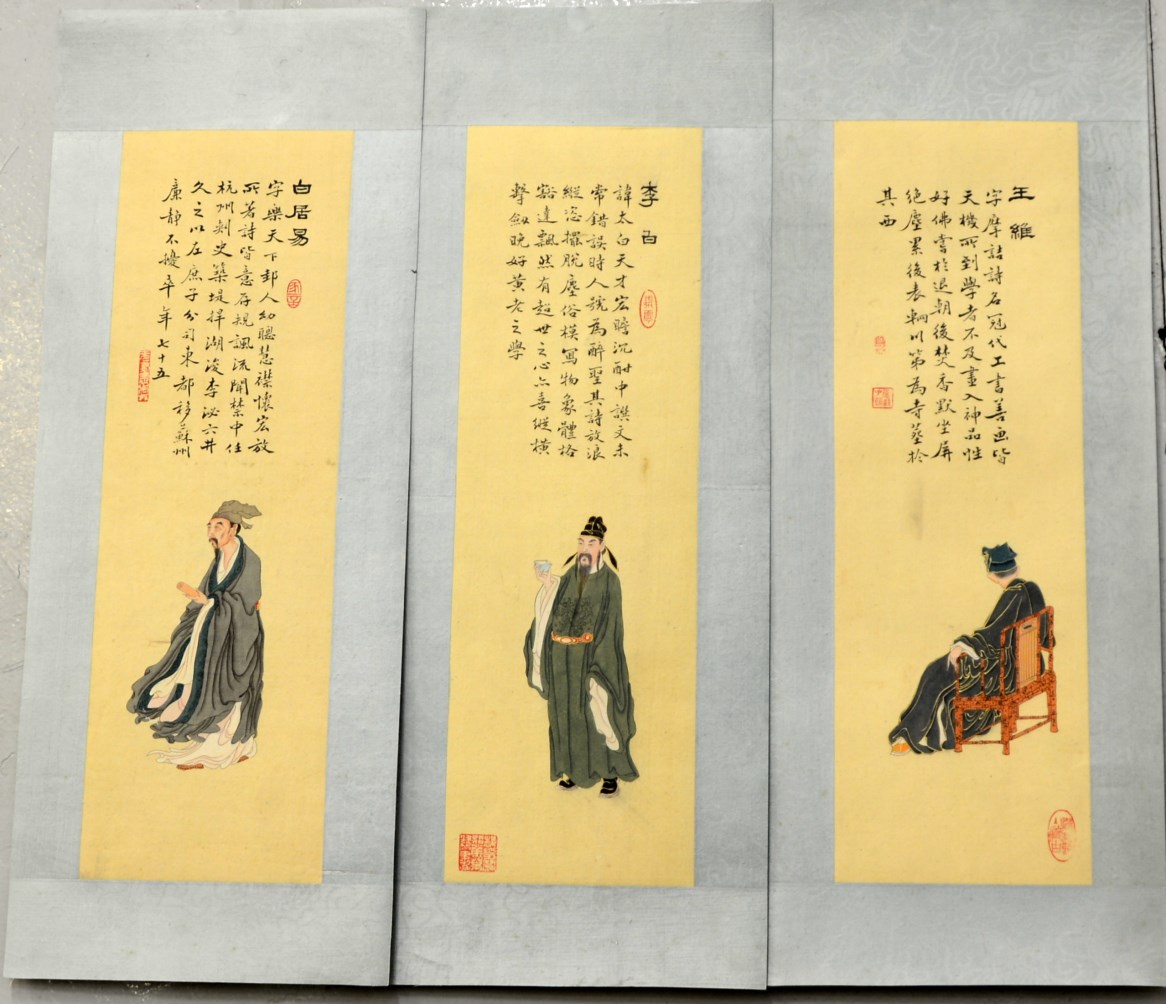 王維
字摩詰詩名冠代工書善画皆
天機所到學者不及畫入神品性
好佛嘗於退朝後焚香默坐屏
絶塵累後表輞川第為寺葬於
其西
李白
諱太白天才宏贍沉酣中譔文未
常錯誤時人號為醉聖其詩放浪
縱恣擺脱塵俗模寫物象體格
豁達飄然有超世之心亦善縱横
擊劍晚好黃老之學
白居易
字樂天下邽人幼聰慧襟懷宏放
所著詩皆意存規諷流聞禁中任
杭州刺史築堤捍湖浚李泌六井
久之以左庶子分司東都移蘇州
廉静不擾卒年七十五